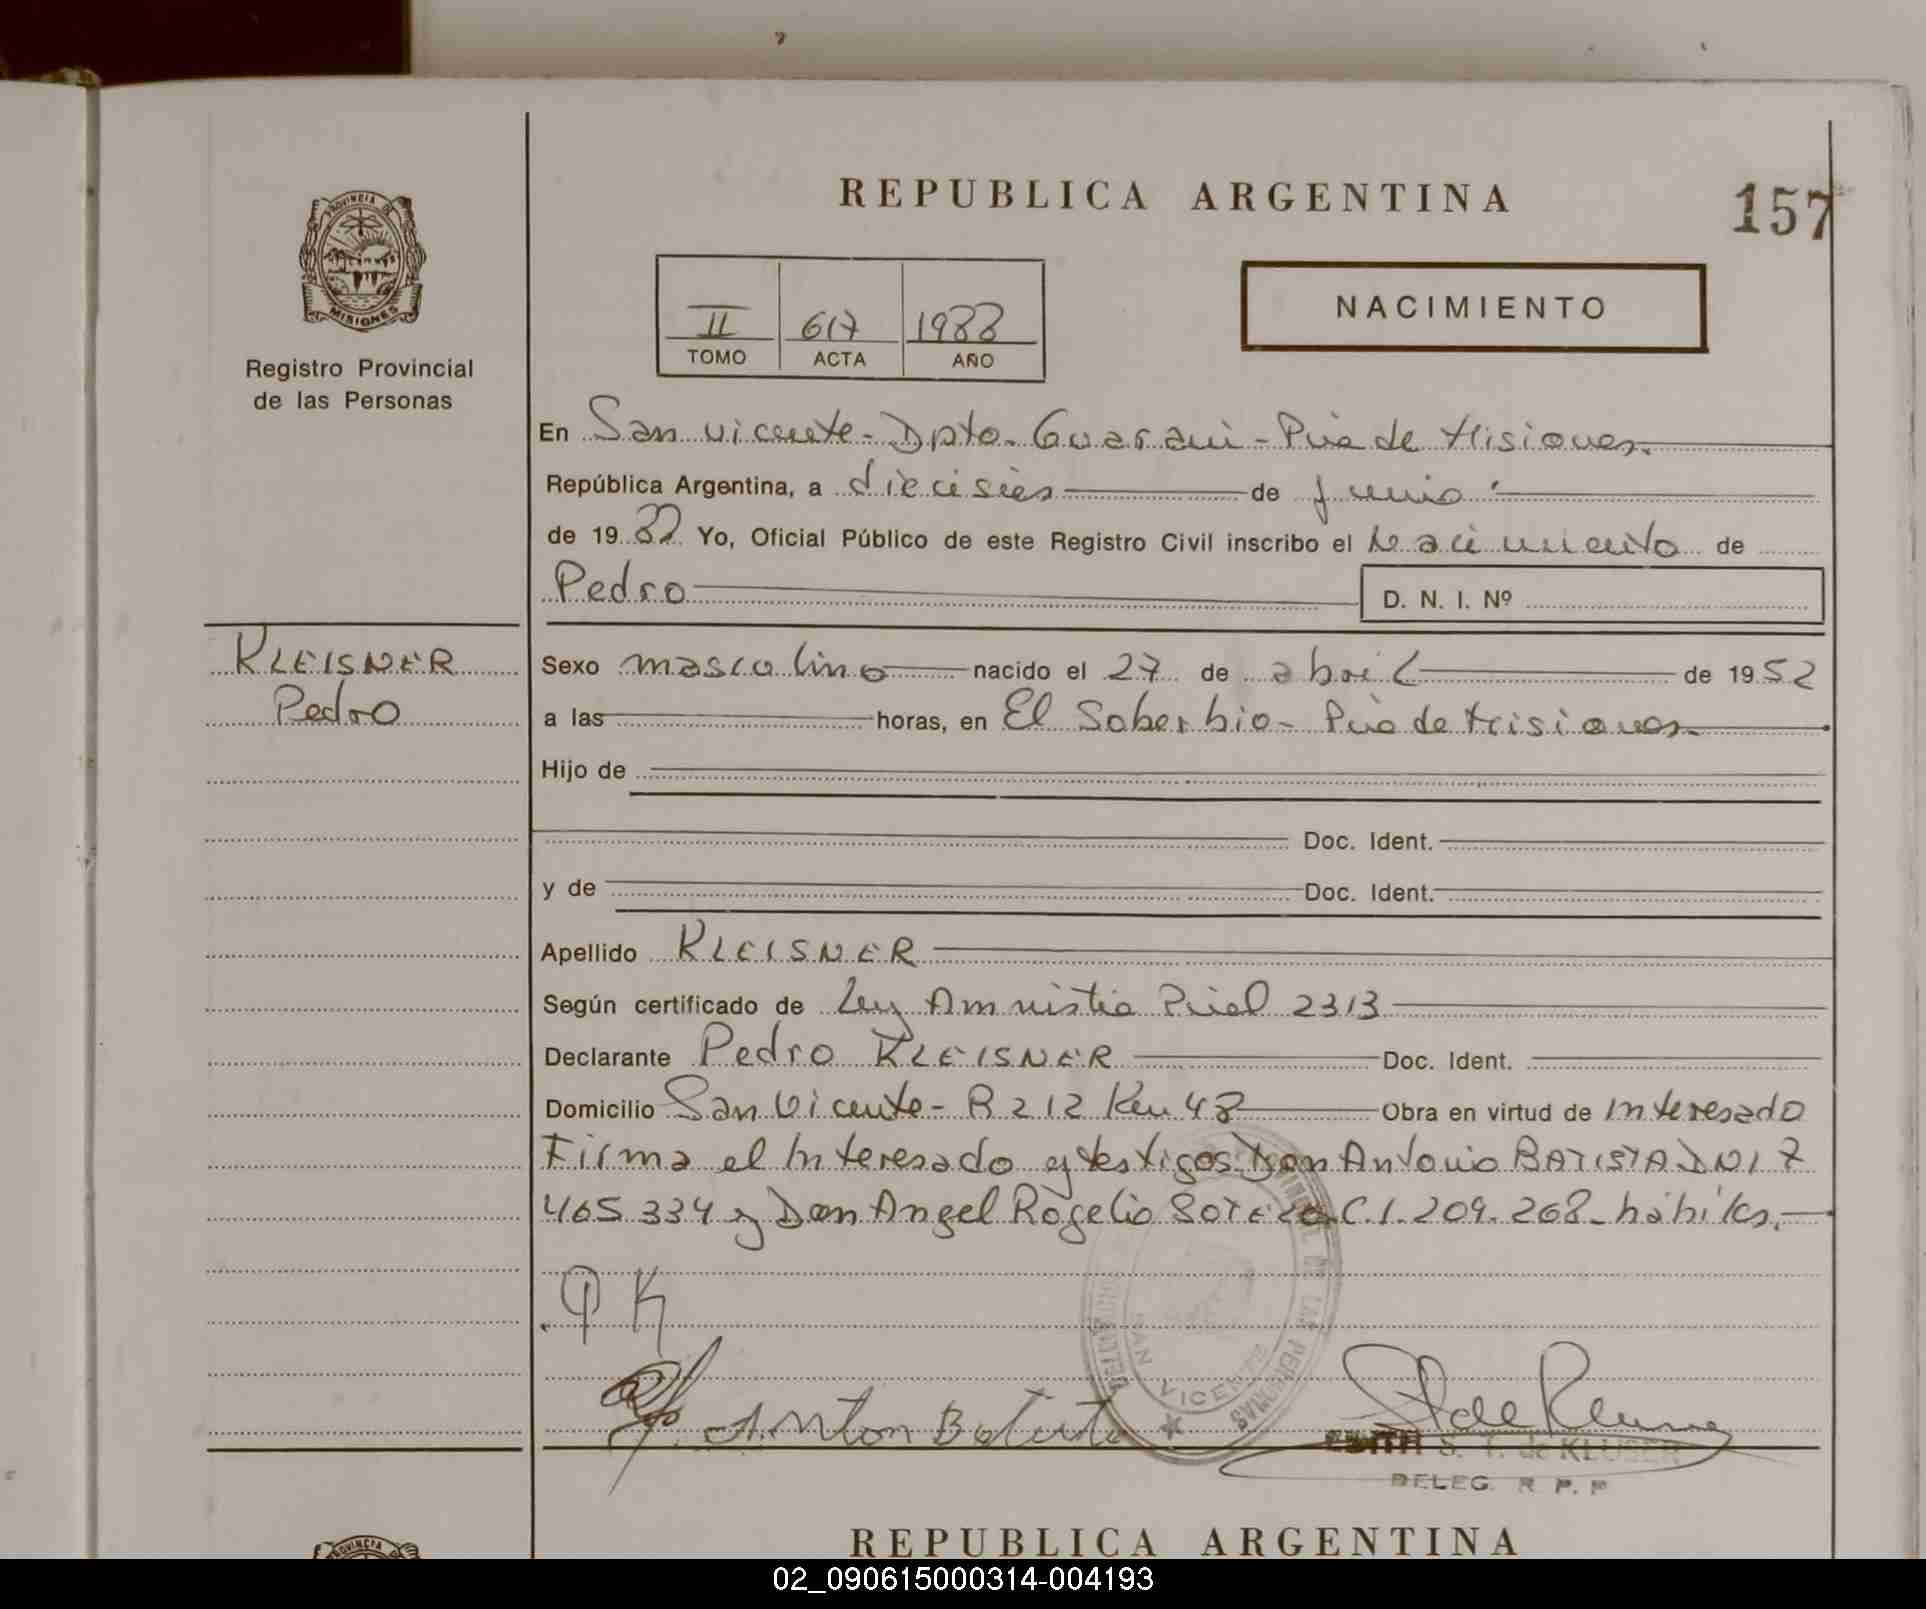 REPUBLICA ARGENTINA
157
PROVINCIA DE
MISIONES
Registro Provincial
de las Personas
II 617 1988
TOMO ACTA AÑO
NACIMIENTO
En San Vicente - Dpto. Guaraní - Pcia de Misiones.
República Argentina, a dieciseis de junio
de 1988 Yo, Oficial Público de este Registro Civil inscribo el Nacimiento de
Pedro D. N. I. Nº
KLEISNER
Pedro
Sexo masculino nacido el 27 de abril de 1952
a las horas, en El Soberbio - Pcia de Misiones
Hijo de
Doc. Ident.
y de Doc. Ident.
Apellido KLEISNER
Según certificado de Ley Amnistia Pcial 2313
Declarante Pedro KLEISNER Doc. Ident.
Domicilio San Vicente - R 212 Km 48 Obra en virtud de Interesado
Firma el Interesado y testigos Don Antonio BATISTA DNI 7
465 334 y Don Angel Rogelio SOTELO C.I. 209.268 - hábiles.
PK
SAN VICENTE
DE LAS PERSONAS
EDITH S. T. de KLUSER
DELEG. R. P. P
REPUBLICA ARGENTINA
PROVINCIA
02_090615000314-004193